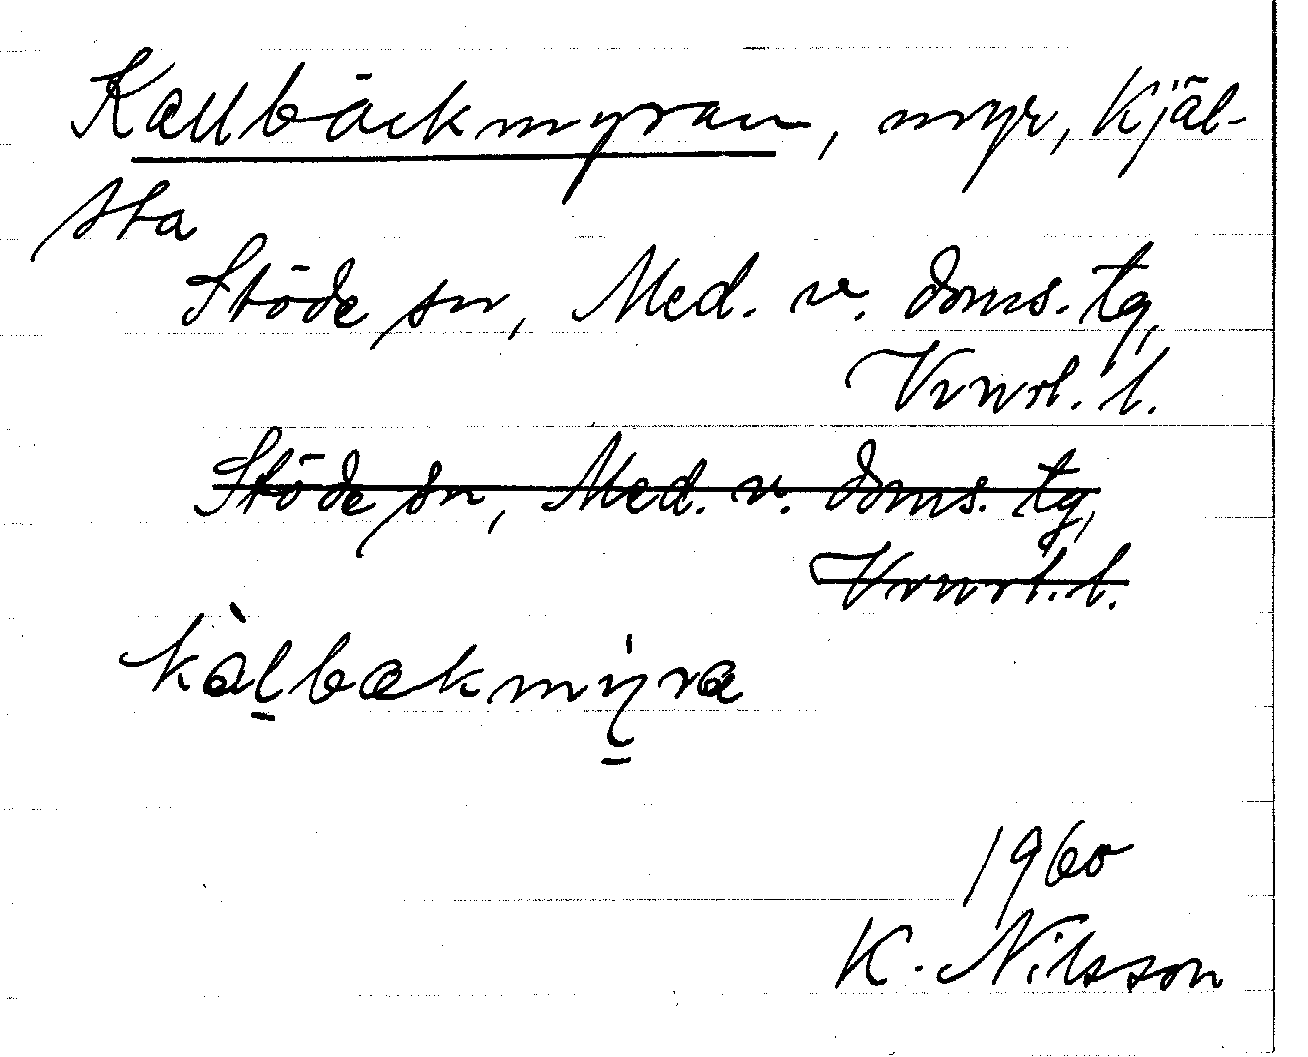 Kallbäckmyran, myr, Kjäl-
sta
Stöde sn, Med. v. doms. tg,
Vrnrl. l.
Stöde sn, Med. v. doms. tg,
Vrnrl. l.
kàlbækmy̍ra
1960
K. Nilsson